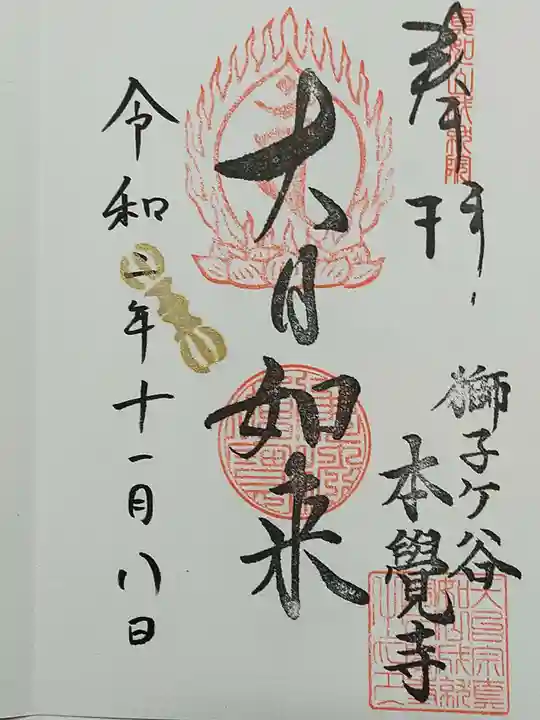 奉拝
獅子ケ谷
本覺寺
大日如来
令和二年十一月八日